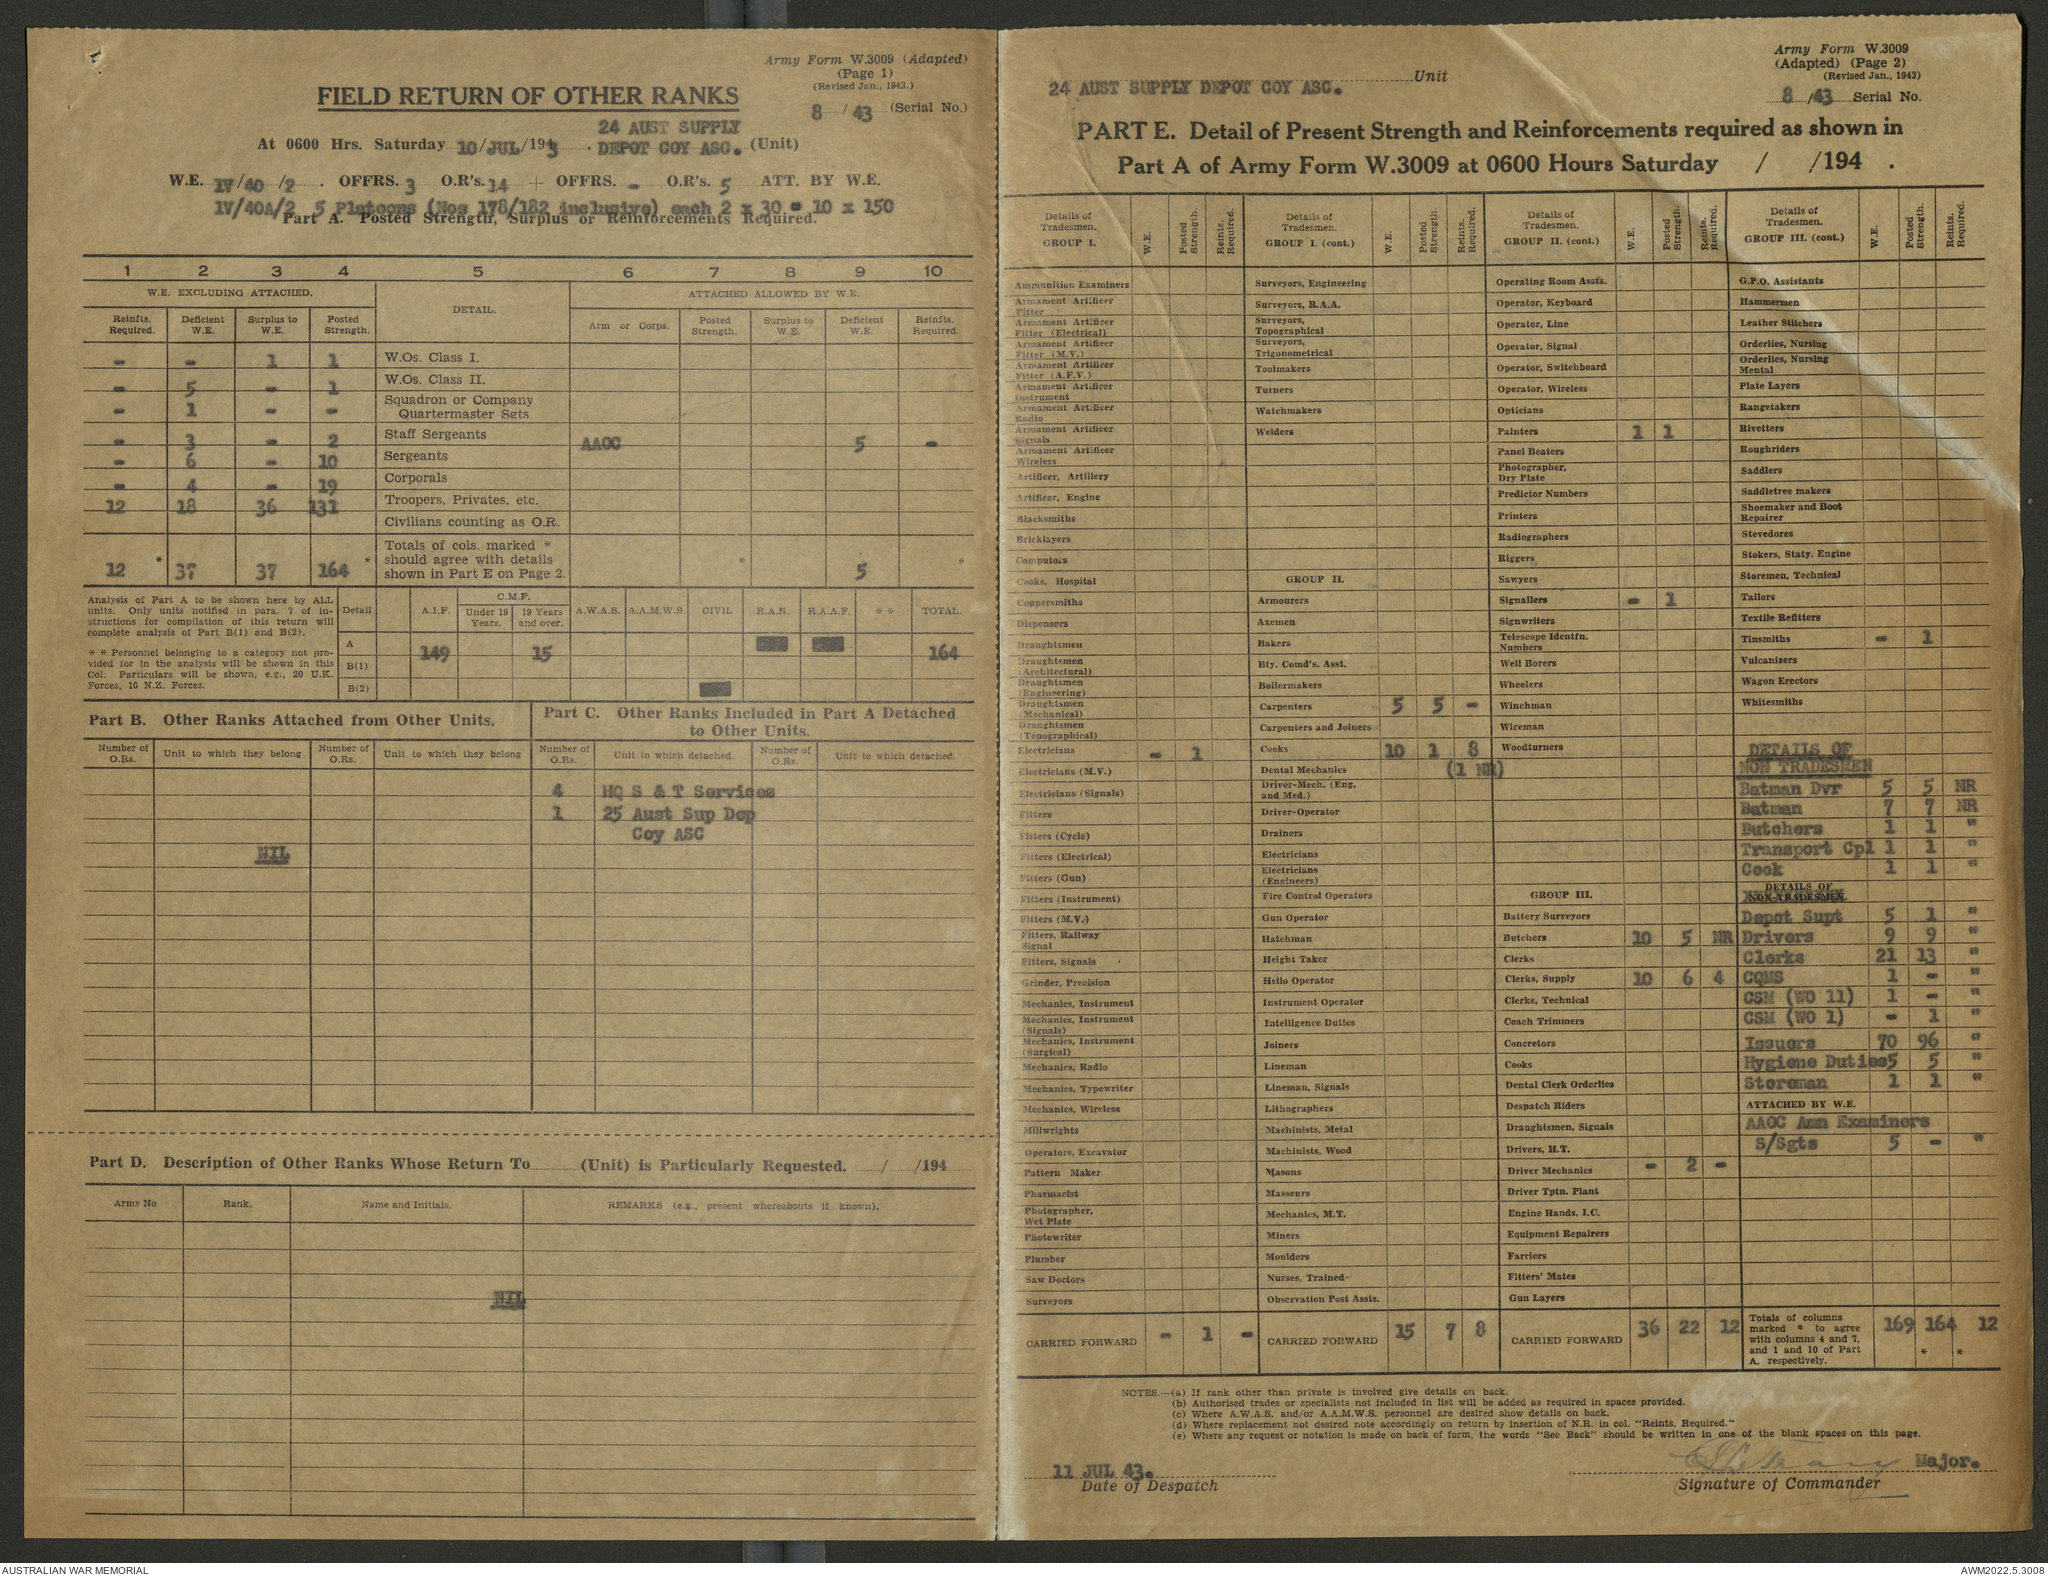 Army Form W.3009 (Adapted)
(Page 1)
(Revised Jan., 1943.)
FIELD RETURN OF OTHER RANKS
8 / 43 (Serial No.)
24 AUST SUPPLY
At 0600 Hrs. Saturday 10/JUL/1943 . DEPOT COY ASC. (Unit)
W.E. 1V/40 /2 . OFFRS. 3 O.R's. 14 + OFFRS. - O.R's. 5 ATT. BY W.E.
1V/40A/2 5 Platoons (Nos 178/182 inclusive) each 2 x 30 = 10 x 150
Part A. Posted Strength, Surplus or Reinforcements Required.
1 2 3 4 5 6 7 8 9 10
W.E. EXCLUDING ATTACHED. DETAIL. ATTACHED ALLOWED BY W.E.
Reinfts. Required. Deficient W.E. Surplus to W.E. Posted Strength. Arm or Corps. Posted Strength. Surplus to W.E. Deficient W.E. Reinfts. Required.
- - 1 1 W.Os. Class I.
- 5 - 1 W.Os. Class II.
- 1 - - Squadron or Company Quartermaster Sgts.
- 3 - 2 Staff Sergeants AAOC 5 -
- 6 - 10 Sergeants
- 4 - 19 Corporals
12 18 36 131 Troopers, Privates, etc.
Civilians counting as O.R.
12 * 37 37 164 * Totals of cols. marked * should agree with details shown in Part E on Page 2. * 5 *
Analysis of Part A to be shown here by ALL
units. Only units notified in para. 7 of in-
structions for compilation of this return will
complete analysis of Part B(1) and B(2).
* * Personnel belonging to a category not pro-
vided for in the analysis will be shown in this
Col. Particulars will be shown, e.g., 20 U.K.
Forces, 10 N.Z. Forces.
Detail A.I.F. C.M.F. Under 19 Years. 19 Years and over. A.W.A.S. A.A.M.W.S. CIVIL R.A.N. R.A.A.F. * * TOTAL.
A 149 15 164
B(1)
B(2)
Part B. Other Ranks Attached from Other Units.
Part C. Other Ranks Included in Part A Detached
to Other Units.
Number of O.Rs. Unit to which they belong Number of O.Rs. Unit to which they belong Number of O.Rs. Unit to which detached. Number of O.Rs. Unit to which detached.
4 HQ S & T Services
1 25 Aust Sup Dep
Coy ASC
NIL
Part D. Description of Other Ranks Whose Return To (Unit) is Particularly Requested. / /194
Army No Rank. Name and Initials. REMARKS (e.g., present whereabouts if known).
NIL
Army Form W.3009
(Adapted) (Page 2)
(Revised Jan., 1943)
24 AUST SUPPLY DEPOT COY ASC. Unit
8 /43 Serial No.
PART E. Detail of Present Strength and Reinforcements required as shown in
Part A of Army Form W.3009 at 0600 Hours Saturday / /194 .
Details of Tradesmen. GROUP I. W.E. Posted Strength. Reints. Required.
Ammunition Examiners
Armament Artificer Fitter
Armament Artificer Fitter (Electrical)
Armament Artificer Fitter (M.V.)
Armament Artificer Fitter (A.F.V.)
Armament Artificer Instrument
Armament Artificer Radio
Armament Artificer Signals
Armament Artificer Wireless
Artificer, Artillery
Artificer, Engine
Blacksmiths
Bricklayers
Computors
Cooks, Hospital
Coppersmiths
Dispensers
Draughtsmen
Draughtsmen (Architectural)
Draughtsmen (Engineering)
Draughtsmen (Mechanical)
Draughtsmen (Topographical)
Electricians - 1
Electricians (M.V.)
Electricians (Signals)
Fitters
Fitters (Cycle)
Fitters (Electrical)
Fitters (Gun)
Fitters (Instrument)
Fitters (M.V.)
Fitters, Railway Signal
Fitters, Signals
Grinder, Precision
Mechanics, Instrument
Mechanics, Instrument (Signals)
Mechanics, Instrument (Surgical)
Mechanics, Radio
Mechanics, Typewriter
Mechanics, Wireless
Millwrights
Operators, Excavator
Pattern Maker
Pharmacist
Photographer, Wet Plate
Photowriter
Plumber
Saw Doctors
Surveyors
CARRIED FORWARD - 1 -
Details of Tradesmen. GROUP I. (cont.) W.E. Posted Strength. Reints. Required.
Surveyors, Engineering
Surveyors, R.A.A.
Surveyors, Topographical
Surveyors, Trigonometrical
Toolmakers
Turners
Watchmakers
Welders
GROUP II.
Armourers
Axemen
Bakers
Bty. Comd's. Asst.
Boilermakers
Carpenters 5 5 -
Carpenters and Joiners
Cooks 10 1 8
Dental Mechanics (1 NR)
Driver-Mech. (Eng. and Med.)
Driver-Operator
Drainers
Electricians
Electricians (Engineers)
Fire Control Operators
Gun Operator
Hatchman
Height Taker
Hello Operator
Instrument Operator
Intelligence Duties
Joiners
Lineman
Lineman, Signals
Lithographers
Machinists, Metal
Machinists, Wood
Masons
Masseurs
Mechanics, M.T.
Miners
Moulders
Nurses, Trained
Observation Post Assts.
CARRIED FORWARD 15 7 8
Details of Tradesmen. GROUP II. (cont.) W.E. Posted Strength. Reints. Required.
Operating Room Assts.
Operator, Keyboard
Operator, Line
Operator, Signal
Operator, Switchboard
Operator, Wireless
Opticians
Painters 1 1
Panel Beaters
Photographer, Dry Plate
Predictor Numbers
Printers
Radiographers
Riggers
Sawyers
Signallers - 1
Signwriters
Telescope Identfn. Numbers
Well Borers
Wheelers
Winchman
Wireman
Woodturners
GROUP III.
Battery Surveyors
Butchers 10 5 NR
Clerks
Clerks, Supply 10 6 4
Clerks, Technical
Coach Trimmers
Concretors
Cooks
Dental Clerk Orderlies
Despatch Riders
Draughtsmen, Signals
Drivers, H.T.
Driver Mechanics - 2 -
Driver Tptn. Plant
Engine Hands, I.C.
Equipment Repairers
Farriers
Fitters' Mates
Gun Layers
CARRIED FORWARD 36 22 12
Details of Tradesmen. GROUP III. (cont.) W.E. Posted Strength. Reints. Required.
G.P.O. Assistants
Hammermen
Leather Stitchers
Orderlies, Nursing
Orderlies, Nursing Mental
Plate Layers
Rangetakers
Rivetters
Roughriders
Saddlers
Saddletree makers
Shoemaker and Boot Repairer
Stevedores
Stokers, Staty. Engine
Storemen, Technical
Tailors
Textile Refitters
Tinsmiths - 1
Vulcanizers
Wagon Erectors
Whitesmiths
DETAILS OF
NON TRADESMEN
Batman Dvr 5 5 NR
Batman 7 7 NR
Butchers 1 1 "
Transport Cpl 1 1 "
Cook 1 1 "
DETAILS OF
NON-TRADESMEN.
Depot Supt 5 1 "
Drivers 9 9 "
Clerks 21 13 "
CQMS 1 - "
CSM (WO 11) 1 - "
CSM (WO 1) - 1 "
Issuers 70 96 "
Hygiene Duties 5 5 "
Storeman 1 1 "
ATTACHED BY W.E.
AAOC Amn Examiners
S/Sgts 5 - "
Totals of columns marked * to agree with columns 4 and 7, and 1 and 10 of Part A. respectively. 169 164 * 12 *
NOTES.—(a) If rank other than private is involved give details on back.
(b) Authorised trades or specialists not included in list will be added as required in spaces provided.
(c) Where A.W.A.S. and/or A.A.M.W.S. personnel are desired show details on back.
(d) Where replacement not desired note accordingly on return by insertion of N.R. in col. "Reints. Required."
(e) Where any request or notation is made on back of form, the words "See Back" should be written in one of the blank spaces on this page.
11 JUL 43. Major.
Date of Despatch Signature of Commander
AUSTRALIAN WAR MEMORIAL AWM2022.5.3008